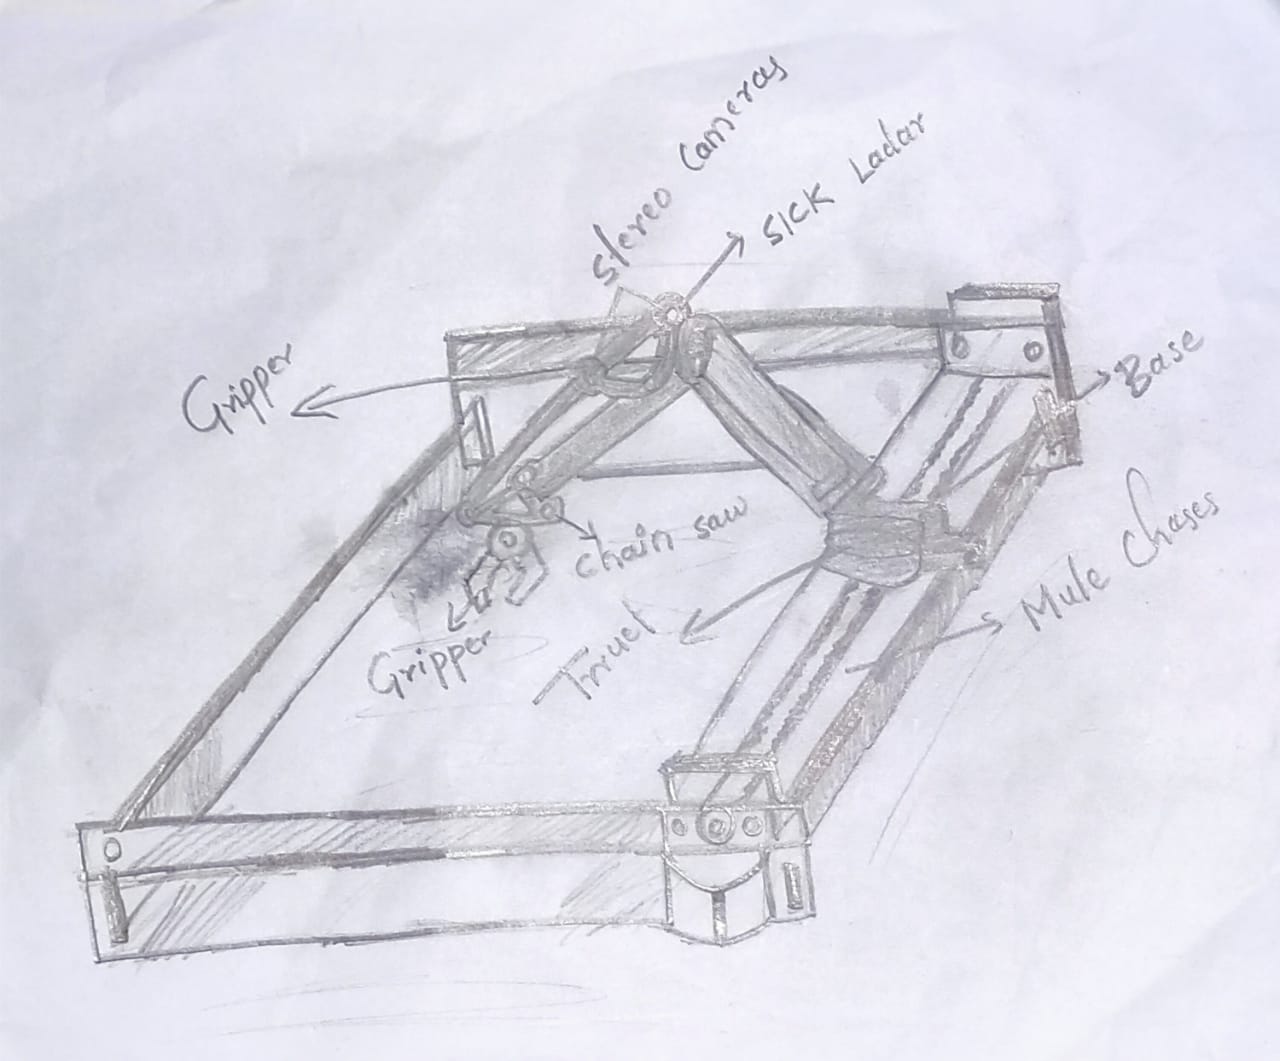 Stereo Cameras
SICK Ladar
Gripper
Base
Chain saw
Mule Chases
Gripper
Truct